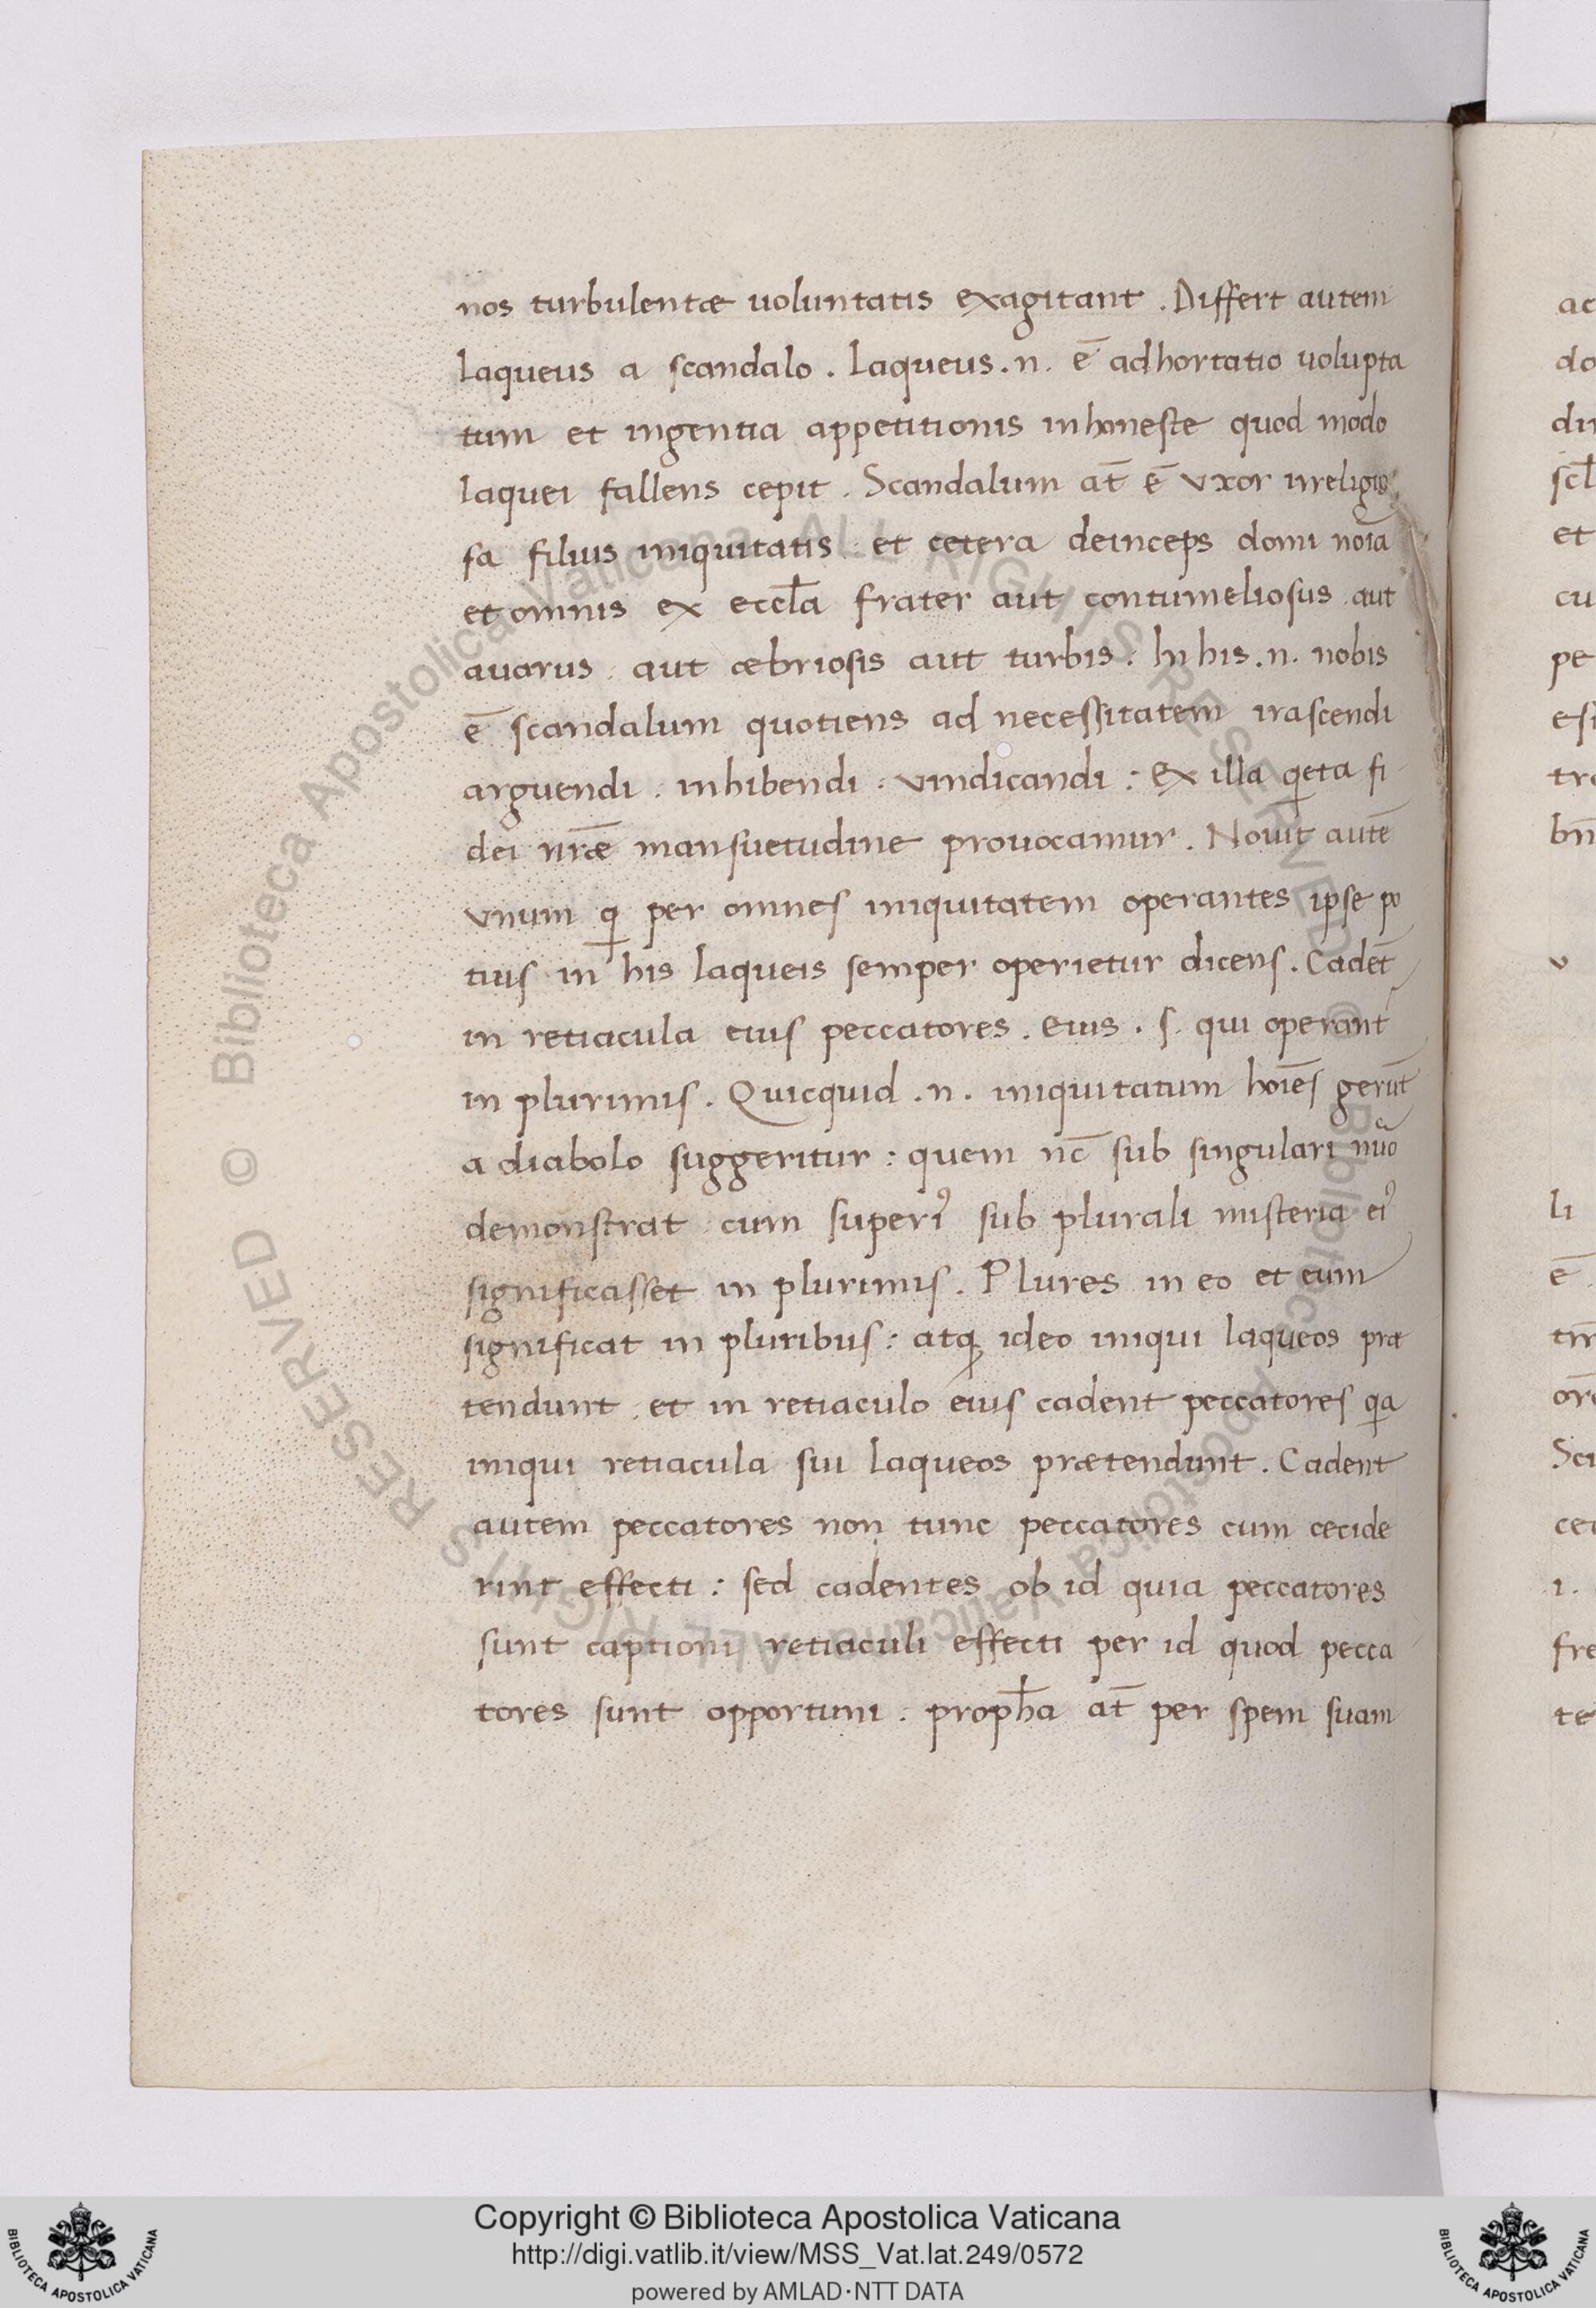 nos turbulentæ uoluntatis exagitant . Differt autem
laqueus a scandalo . laqueus . n . ē adhortatio uolupta
tum et ingentia appetitionis inhoneste quod modo
laquei fallens cepit . Scandalum at̄ ē vxor irreligio
sa filius iniquitatis et cetera deinceps domi noīa
et omnis ex eccl̄a frater aut contumeliosus aut
auarus . aut æbriosis aut turbis : In his . n . nobis
ē scandalum quotiens ad necessitatem irascendi
arguendi . inhibendi . vindicandi : ex illa q̣eta fi
dei nr̄æ mansuetudine prouocamur . Nouit autē
vnum q̣ per omnes iniquitatem operantes ipse po
tius in his laqueis semper operietur dicens . Cadēt
in retiacula eius peccatores . eius . s . qui operant̄
in plurimis . Quicquid . n . iniquitatum hoīes gerūt
a diabolo suggeritur : quem nc̄ sub singulari nūo
demonstrat cum superiꝰ sub plurali misteria eiꝰ
significasset in plurimis . Plures in eo et eum
significat in pluribus : atq; ideo iniqui laqueos præ
tendunt . et in retiaculo eius cadent peccatores qa
iniqui retiacula siu laqueos prætendunt . Cadent
autem peccatores non tunc peccatores cum cecide
rint effecti : sed cadentes ob id quia peccatores
sunt captioni retiaculi effecti per id quod pecca
tores sunt opportuni . proph̄a at̄ per spem suam
ac
do
scl̄
et
cu
pe
tre
bn̄
v
li
ē
Sci
i .
fre
te
© Biblioteca Apostolica Vaticana ALL RIGHTS RESERVED © Biblioteca Apostolica Vaticana ALL RIGHTS RESERVED
Copyright © Biblioteca Apostolica Vaticana
http://digi.vatlib.it/view/MSS_Vat.lat.249/0572
powered by AMLAD·NTT DATA
BIBLIOTECA APOSTOLICA VATICANA
BIBLIOTECA APOSTOLICA VATICANA